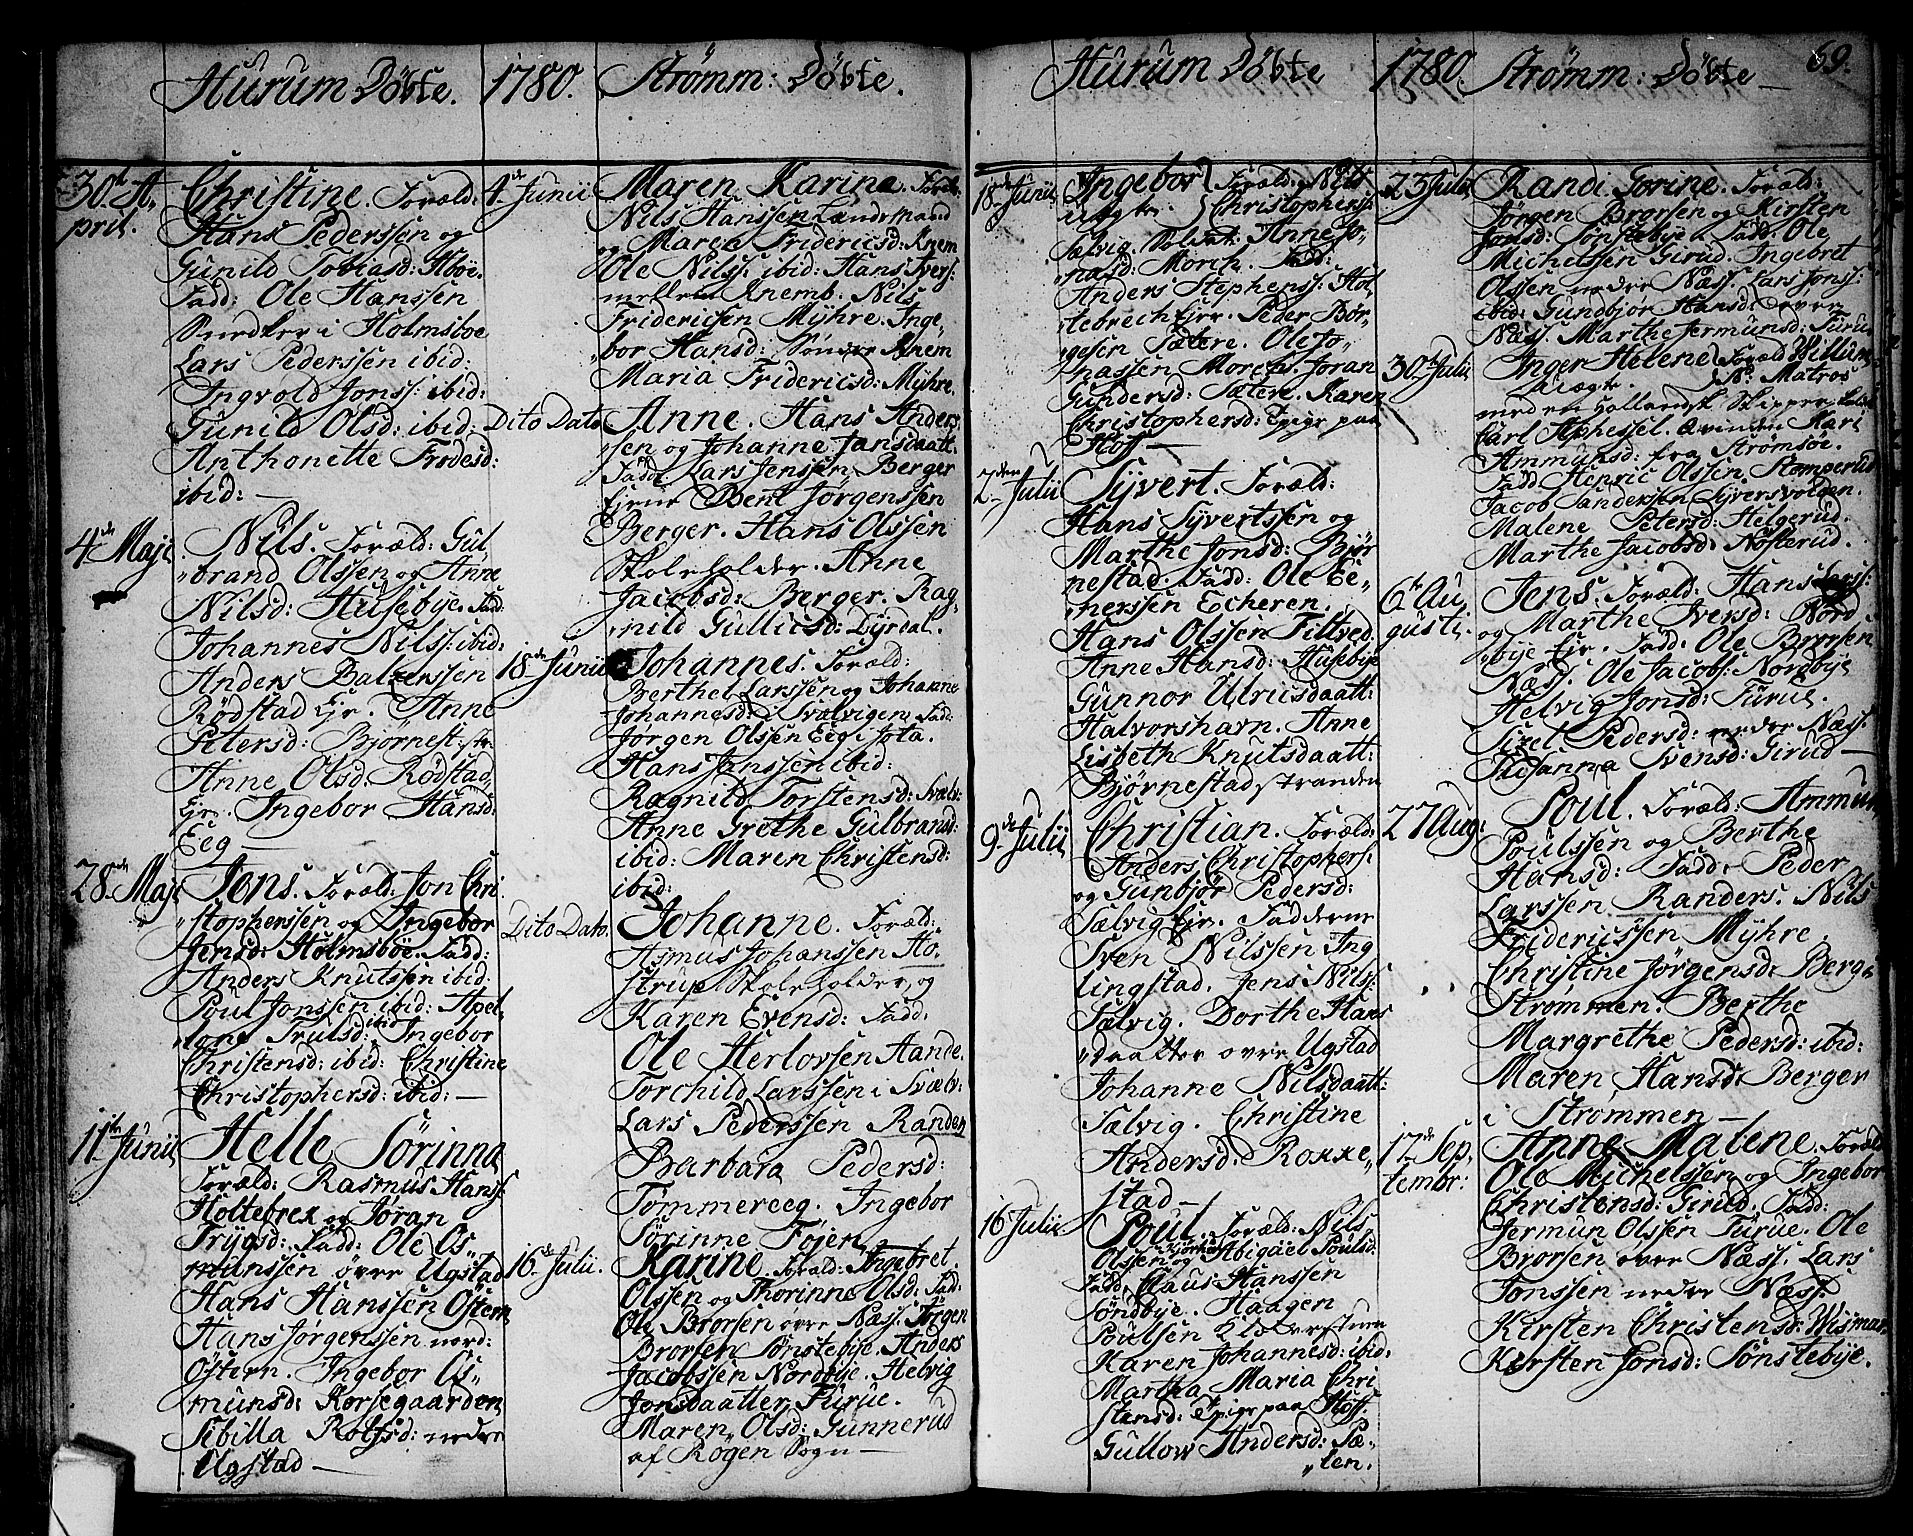 Hurum Döbte. 1780. Strömm: Döbte.
30te A,,
pril.
Christine. Foræld:
Hans Pederssen og
Gunild Tobiasd: ibid.
Fadd: Ole Hanssen
Snedker i Holmsboe
Lars Pederssen ibid:
Ingvold Jonss: ibid:
Gunild Olsd: ibid:
Anthonette Frodesd:
ibid:
4de Maji
Nils. Foræld: Gul
brand Olssen og Anne
Nilsd: Husebye. Fad:
Johannes Nilss: ibid:
Anders Baltzerssen
Rödstad Ejr. Anne
Petersd: Bjørnest: str:
Anne Olsd: Rödstad
Ejr. Ingebor Hansd:
Eeg
28de Maji
Jens. Foræld: Jon Chri
stopherssen og Ingebor
Jensd: Holmsböe. Fadd:
Anders Knutssen ibid:
Poul Jonssen ibid: Apel,,
lone Trulsd: ibid Ingebor
Christensd: ibid: Christine
Christophersd: ibid:
11te Junii
Helle Sörinna
Foræld: Rasmus Hanss:
Holtebrek og Joran
Trygsd: Fadd: Ole Os,,
munssen övre Ugstad
Hans Hanssen Östern
Hans Jørgenssen nord:
Östern. Ingebor Os,,
munsd: Korsegaarden
Sibilla Rolfsd: nedre
Ugstad
4de Junii
Maren Karina. Foræld:
Nils Hanssen Lændestrand
og Maren Fridericsd: Knem
Ole Nilss: ibid: Hans Ivers:
mellem Knemb. Nils
Fridericsen Myhre. Inge,,
bor Hansd: Sönder Knem
Maria Fridericsd: Myhre.
Dito Dato
Anne. Hans Anders,,
sen og Johanne Jansdaatt:
Fadd: Lars Jenssen Berger
Ejr Bent Jörgenssen
Berger. Hans Olssen
Skoleholder. Anne
Jacobsd: Berger. Rag,,
nild Gullicsd: Dyrdal.
18de Junii
Johannes. Foræld:
Berthel Larssen og Johanne
Johannesd: i Svælvigen. Fad:
Jörgen Olsen Eeg i Sota.
Hans Jenssen ibid:
Ragnild Torstensd: Svælv:
Anne Grethe Gulbransd:
ibid: Maren Christensd:
ibid:
Dito Dato.
Johanne. Foræld:
Asmus Johanssen Ho,,
strup Skoleholder og
Karen Evensd: Fadd:
Ole Herlovsen Aande.
Torchild Larssen i Svælv:
Lars Pederssen Randen
Barbara Pedersd:
Tømmereeg. Ingebor
Sörinne Føjen.
16de Julii.
Karine. Foræld: Ingebret
Olssen og Thorinne Olsd: Fad:
Ole Brorsen övre Næss: Jörgen
Brorsen Sönstebye. Anders
Jacobssen Nordbye. Helvig
Jonsdaatter Furue.
Maren Olsd: Gunnerud
af Rögen Sogn
Hurum Döbte 1780. Strömm: Döbte 69.
18de Junii
Ingebor Foræld: Nils
uægte. Christopherss:
Sælvig. Soldat: Anne Jo,,
nasd: Morch. Fadd:
Anders Stephenss: Hol,,
tebrech Ejr. Peder Bör,,
gesen Sætere. Ole Jo,,
nassen Morch. Joran
Gundersd: Sætere. Karen
Christophersd: Epigr paa
Hoff
2den Julii
Syvert. Foræld:
Hans Syvertssen og
Marthe Jonsd: Bjør
nestad. Fadd: Ole Ei,,
nerssen Echeren.
Hans Olssen Tiltved.
Anne Hansd: Husebye
Gunnor Ulricsdaatt:
Halvorshavn. Anne
Lisbeth Knutsdaatt:
Bjørnestad stranden
9de Julii
Christian. Foræld:
Anders Christopherss:
og Gunbjör Pedersd:
Sælvig Ejr. Fadderne
Sven Nilssen Ing,,
lingstad. Jens Nilss:
Sælvig. Dorthe Hans
daatter övre Ugstad
Johanne Nilsdaatt:
Sælvig. Christine
Andersd: Rokke,,
stad
16 Julii
Poul. Foræld: Nils
Olssen og Abigael Poulsd:
Fadd: Claus Hanssen
Söndbye. Haagen
Poulsen Klokkertun
Karen Johannesd: ibid:
Martha Maria Chri
stansd: Epigr paa Hoff.
Gullow Andersd: Sæ,,
ten.
23 Julii
Randi Gorine. Foræld:
Jørgen Brorsen og Kirsten
Jonsd: Sönstebye. Fadd: Ole
Michelssen Girud. Ingebret
Olssen nedre Næss. Lars Jonss:
ibid: Gundbjör Hansd: övre
Næss. Marthe Jermunsd: Furu
30te Julii
Inger Helene Foræld: Willum
uægte. N: Matros
med en Hollandsk Skipper kaldt
Carl Aphessel. Qvinden Mari
Ammunsd: fra Strömsöe.
Fadd: Henric Olssen Stomperud
Jacob Sanderssen Syversvolden.
Malene Petersd: Helgerud.
Marthe Jacobsd: Nosterud.
6te Au,,
gusti.
Jens. Foræld: Hans Larss:
og Marthe Iversd: Nord
bye Ejr. Fadd: Ole Brorsen
Næss. Ole Jacobs: Nordbye
Helvig Jonsd: Furue.
Sizel Pedersd: nedre Næss:
Susanna Svensd: Girud
27 Aug:
Poul. Foræld: Ammun
Poulssen og Berthe
Hansd: Fadd: Peder
Larssen Randers. Nils
Fridericssen Myhre.
Christine Jörgensd: Berge
Strømmen. Berthe
Margrethe Pedersd: ibid:
Maren Hansd: Berger
i Strömmen
17de Sep,,
tembr:
Anne Malene. Foræld:
Ole Michelssen og Ingebor
Christensd: Girud. Fadd:
Jermun Olssen Furue. Ole
Brorsen övre Næss. Lars
Jonssen nedre Næss:
Kirsten Christensd: Wismar
Kirsten Jonsd: Sönstebye.